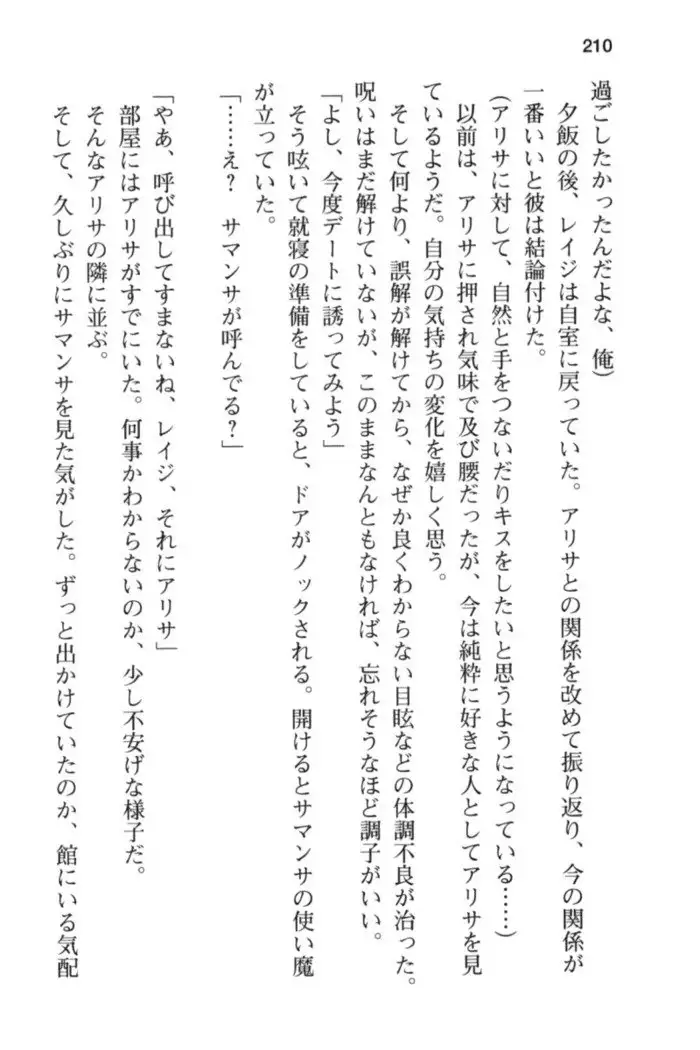 210
過ごしたかったんだよな、俺)
夕飯の後、レイジは自室に戻っていた。アリサとの関係を改めて振り返り、今の関係が
一番いいと彼は結論付けた。
(アリサに対して、自然と手をつないだりキスをしたいと思うようになっている……)
以前は、アリサに押され気味で及び腰だったが、今は純粋に好きな人としてアリサを見
ているようだ。自分の気持ちの変化を嬉しく思う。
そして何より、誤解が解けてから、なぜか良くわからない目眩などの体調不良が治った。
呪いはまだ解けていないが、このままなんともなければ、忘れそうなほど調子がいい。
「よし、今度デートに誘ってみよう」
そう呟いて就寝の準備をしていると、ドアがノックされる。開けるとサマンサの使い魔
が立っていた。
「……え? サマンサが呼んでる?」
「やあ、呼び出してすまないね、レイジ、それにアリサ」
部屋にはアリサがすでにいた。何事かわからないのか、少し不安げな様子だ。
そんなアリサの隣に並ぶ。
そして、久しぶりにサマンサを見た気がした。ずっと出かけていたのか、館にいる気配